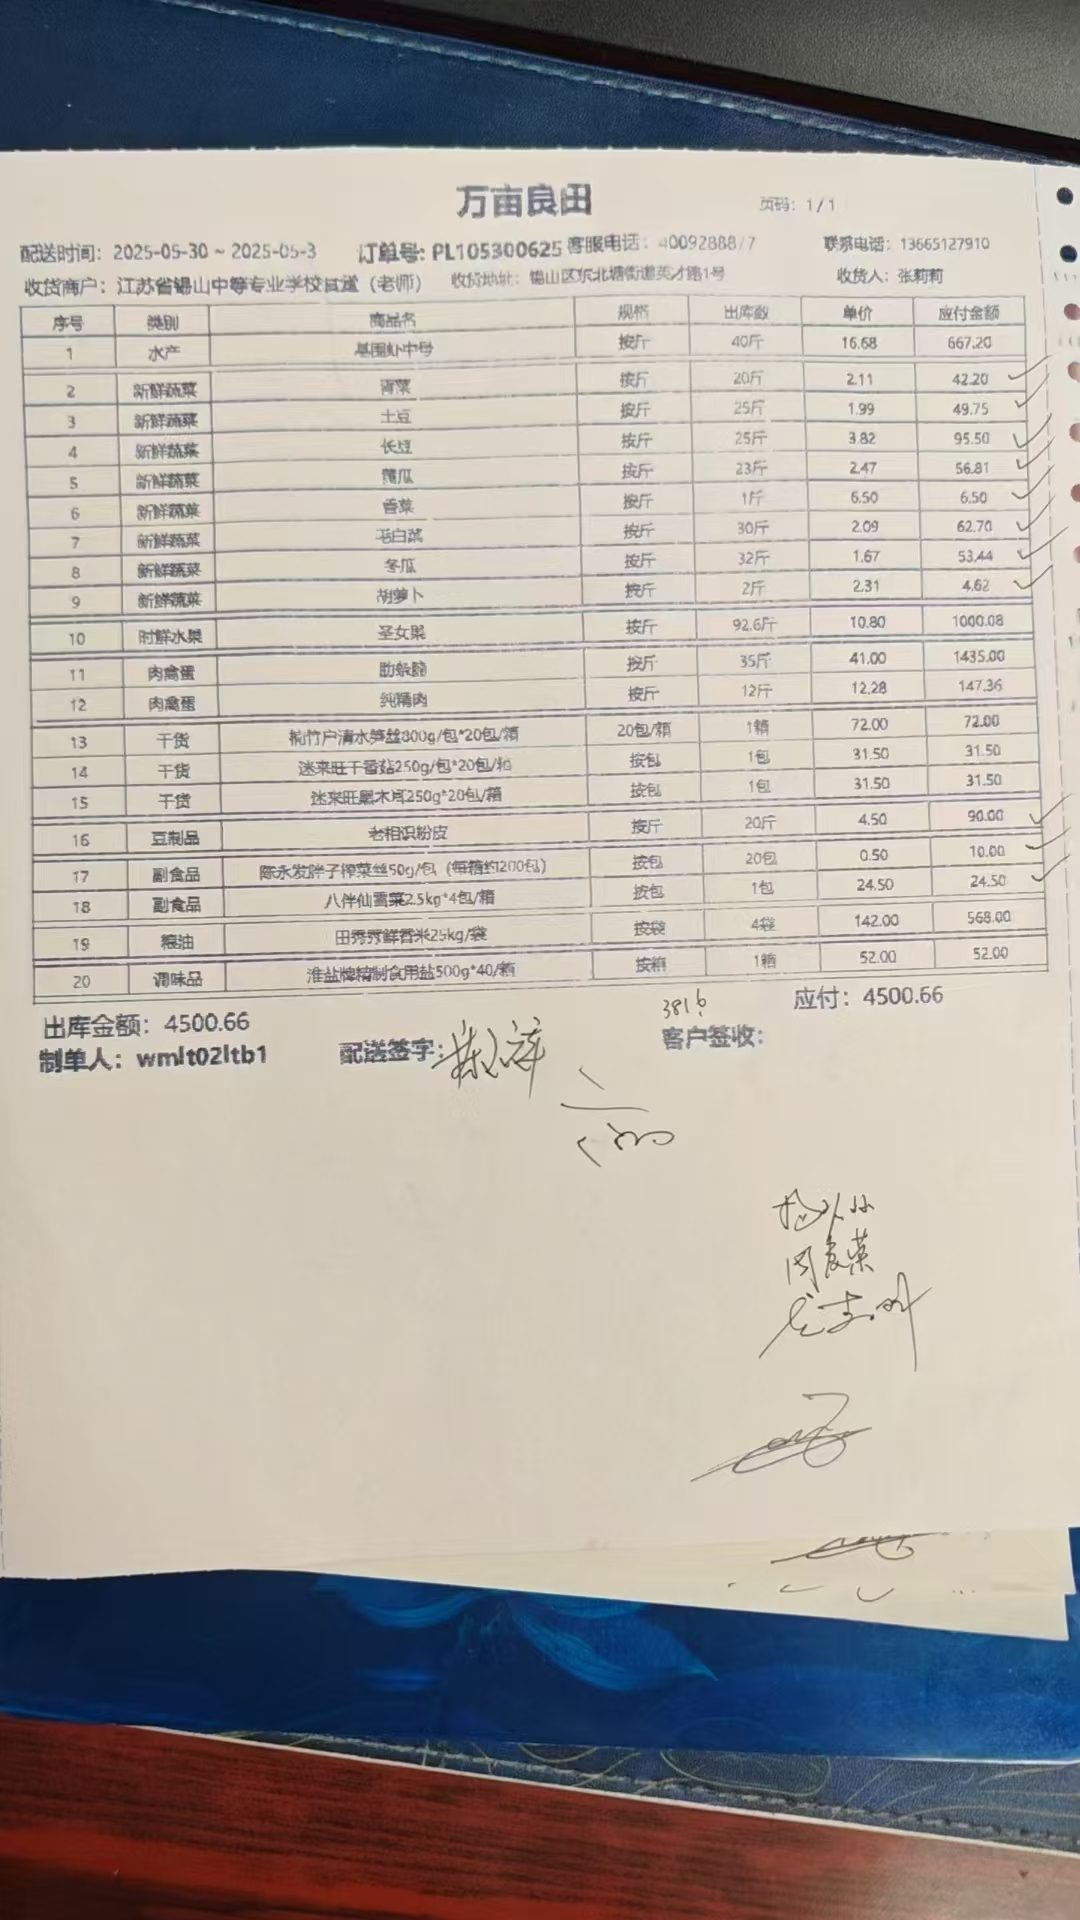 万亩良田
页码：1/1
配送时间：2025-05-30 ~ 2025-05-3 订单号: PL105300625 客服电话：4009288877 联系电话：13665127910
收货商户：江苏省锡山中等专业学校食堂（老师） 收货地址：锡山区东北塘街道英才路1号 收货人：张莉莉
序号 类别 商品名 规格 出库数 单价 应付金额
1 水产 基围虾中号 按斤 40斤 16.68 667.20
2 新鲜蔬菜 青菜 按斤 20斤 2.11 42.20
3 新鲜蔬菜 土豆 按斤 25斤 1.99 49.75
4 新鲜蔬菜 长豆 按斤 25斤 3.82 95.50
5 新鲜蔬菜 蒲瓜 按斤 23斤 2.47 56.81
6 新鲜蔬菜 香菜 按斤 1斤 6.50 6.50
7 新鲜蔬菜 毛白菜 按斤 30斤 2.09 62.70
8 新鲜蔬菜 冬瓜 按斤 32斤 1.67 53.44
9 新鲜蔬菜 胡萝卜 按斤 2斤 2.31 4.62
10 时鲜水果 圣女果 按斤 92.6斤 10.80 1000.08
11 肉禽蛋 肋条腩 按斤 35斤 41.00 1435.00
12 肉禽蛋 纯精肉 按斤 12斤 12.28 147.36
13 干货 桃竹户清水笋丝800g/包*20包/箱 20包/箱 1箱 72.00 72.00
14 干货 迷来旺干香菇250g/包*20包/箱 按包 1包 31.50 31.50
15 干货 迷来旺黑木耳250g*20包/箱 按包 1包 31.50 31.50
16 豆制品 老相识粉皮 按斤 20斤 4.50 90.00
17 副食品 陈永发胖子榨菜丝50g/包（每箱约200包） 按包 20包 0.50 10.00
18 副食品 八伴仙雪菜2.5kg*4包/箱 按包 1包 24.50 24.50
19 粮油 田秀秀鲜香米25kg/袋 按袋 4袋 142.00 568.00
20 调味品 淮盐牌精制食用盐500g*40/箱 按箱 1箱 52.00 52.00
出库金额：4500.66 应付：4500.66
制单人：wmlt02ltb1 配送签字： 客户签收：